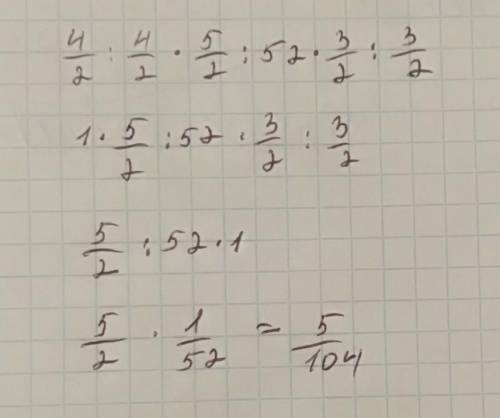 4/2 : 4/2 · 5/2 : 52 · 3/2 : 3/2
1 · 5/2 : 52 · 3/2 : 3/2
5/2 : 52 · 1
5/2 · 1/52 = 5/104